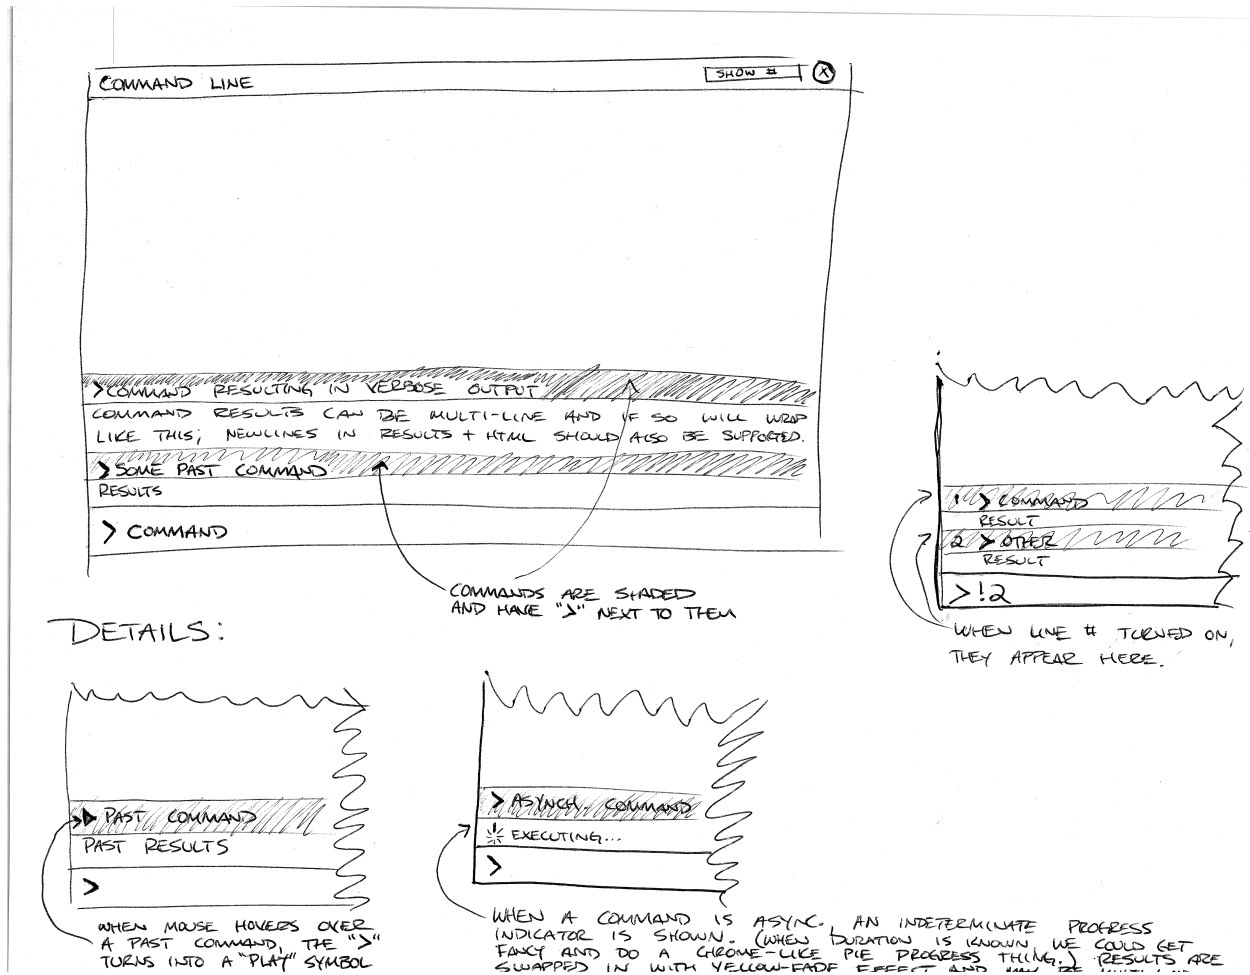 COMMAND LINE
SHOW #
X
>COMMAND RESULTING IN VERBOSE OUTPUT
COMMAND RESULTS CAN BE MULTI-LINE AND IF SO WILL WRAP
LIKE THIS; NEWLINES IN RESULTS + HTML SHOULD ALSO BE SUPPORTED.
>SOME PAST COMMAND
RESULTS
> COMMAND
COMMANDS ARE SHADED
AND HAVE ">" NEXT TO THEM
1 > COMMAND
RESULT
2 > OTHER
RESULT
> !2
WHEN LINE # TURNED ON,
THEY APPEAR HERE.
DETAILS:
PAST COMMAND
PAST RESULTS
>
WHEN MOUSE HOVERS OVER
A PAST COMMAND, THE ">"
TURNS INTO A "PLAY" SYMBOL
> ASYNCH. COMMAND
EXECUTING...
>
WHEN A COMMAND IS ASYNC, AN INDETERMINATE PROGRESS
INDICATOR IS SHOWN. (WHEN DURATION IS KNOWN, WE COULD GET
FANCY AND DO A CHROME-LIKE PIE PROGRESS THING.) RESULTS ARE
SWAPPED IN WITH YELLOW-FADE EFFECT AND MAY BE